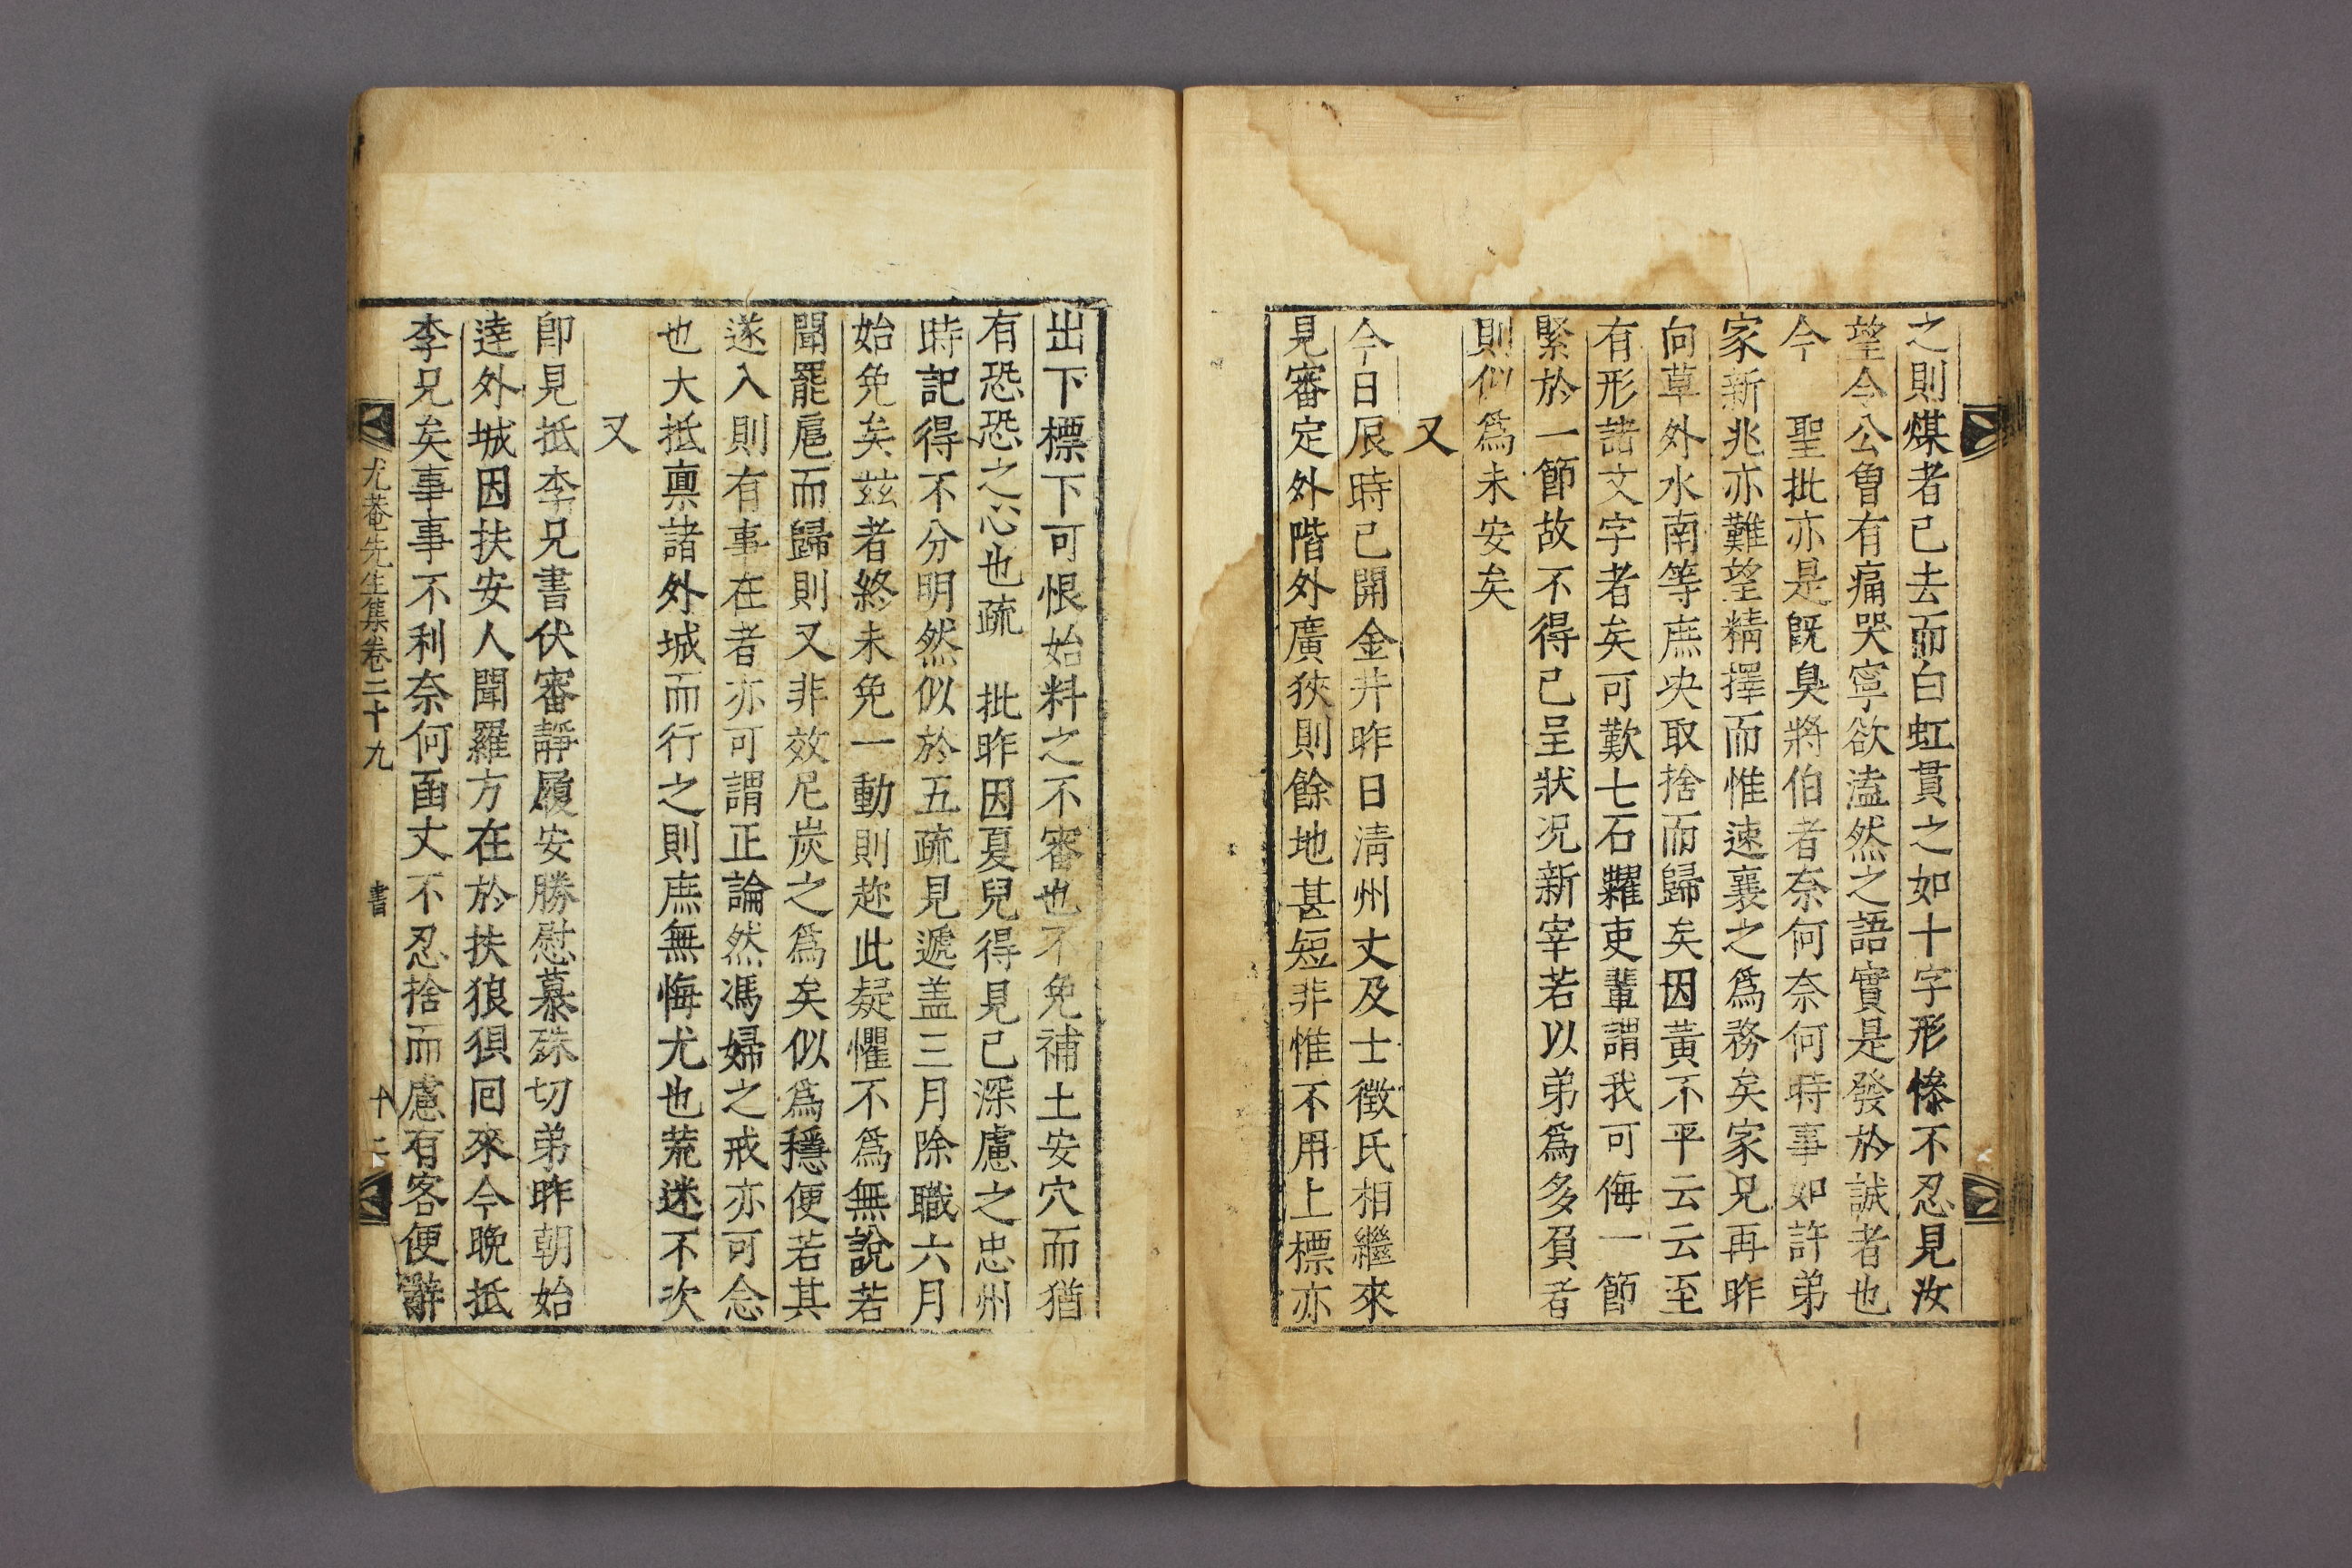 之則煤者已去而白虹貫之如十字形慘不忍見汝
望令公曾有痛哭寧欲溘然之語實是發於誠者也
今　聖批亦是旣臭將伯者奈何奈何時事如許弟
家新兆亦難望精擇而惟速襄之爲務矣家兄再昨
向草外水南等庶央取捨而歸矣因黃不平云云至
有形諸文字者矣可歎七石糶吏輩謂我可侮一節
緊於一節故不得已呈狀况新宰若以弟爲多負者
則似爲未安矣
又
今日辰時已開金井昨日淸州丈及士徵氏相繼來
見審定外階外廣狹則餘地甚短非惟不用上標亦
出下標下可恨始料之不審也不免補土安穴而猶
有恐恐之心也疏　批昨因夏兒得見已深慮之忠州
時記得不分明然似於五疏見遞盖三月除職六月
始免矣茲者終未免一動則趂此疑懼不爲無說若
聞罷扈而歸則又非效尼炭之爲矣似爲穩便若其
遂入則有事在者亦可謂正論然馮婦之戒亦可念
也大抵稟諸外城而行之則庶無悔尤也荒迷不次
又
卽見抵李兄書伏審靜履安勝慰慕殊切弟昨朝始
達外城因扶安人聞羅方在於扶狼狽回來今晩抵
李兄矣事事不利奈何函丈不忍捨而慮有客便辭
尤菴先生集卷二十九　書　十二